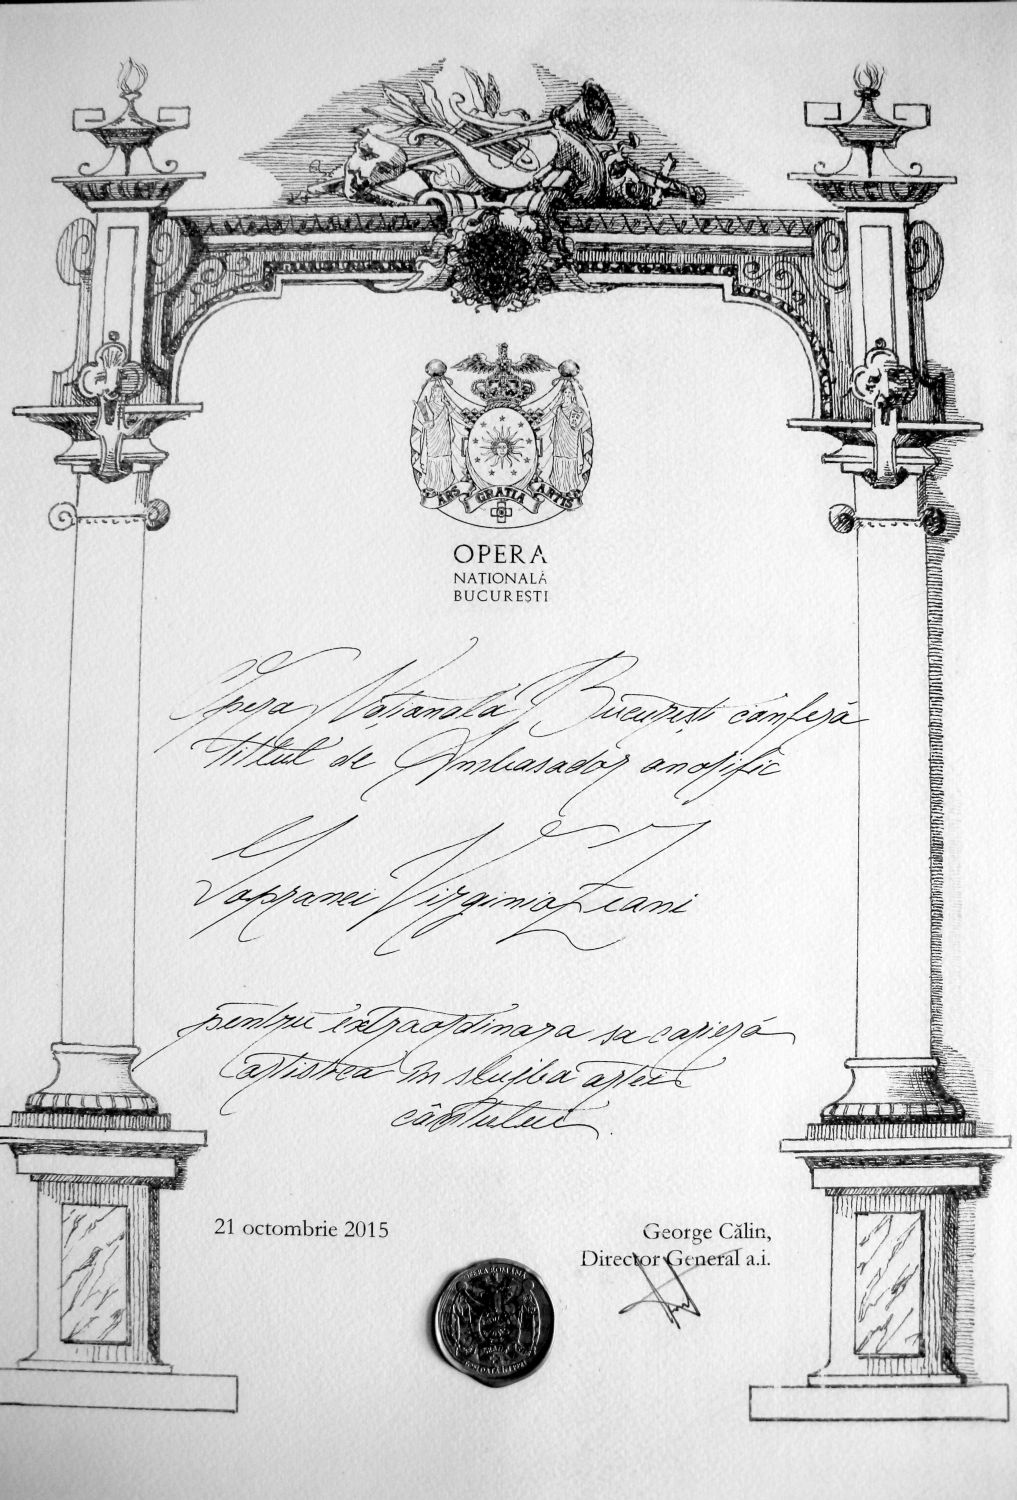 ARS GRATIA ARTIS
OPERA
NAȚIONALĂ
BUCUREȘTI
Opera Națională București conferă
titlul de Ambasador onorific
Sopranei Virginia Zeani
pentru extraordinara sa carieră
artistică în slujba artei
cântului.
21 octombrie 2015
George Călin,
Director General a.i.
OPERA ROMÂNĂ